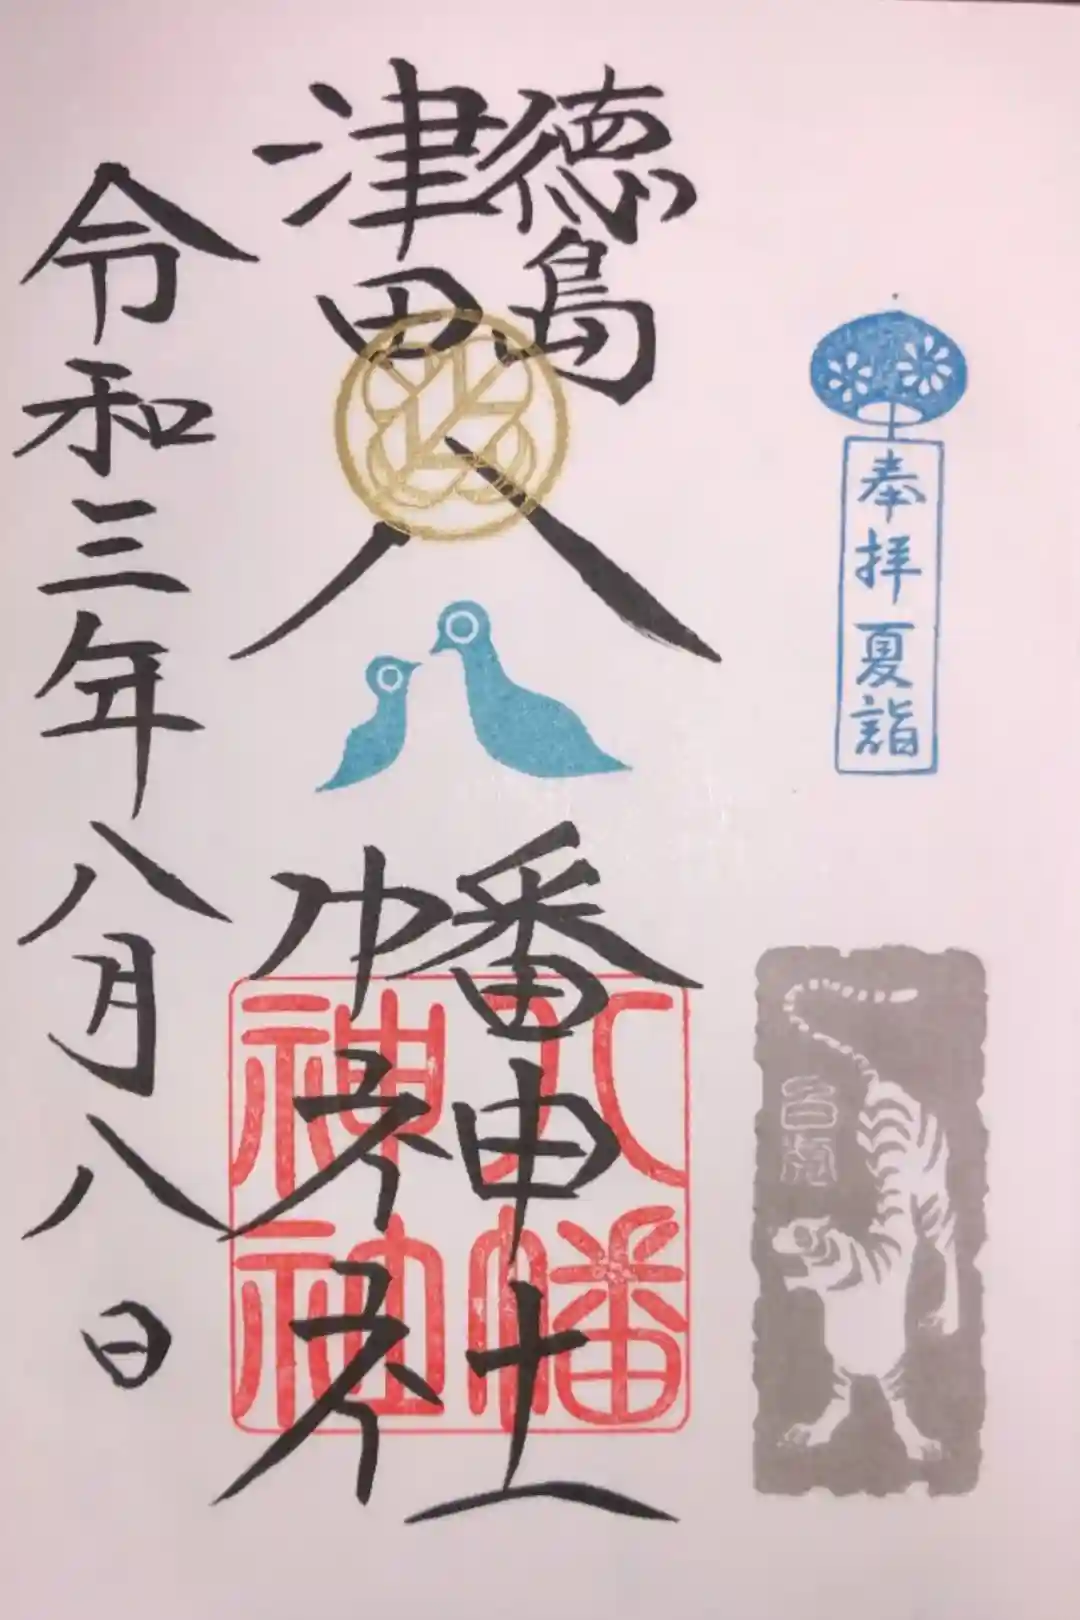 奉拝 夏詣
白虎
徳島
津田
八幡神社
八幡神社
令和三年八月八日